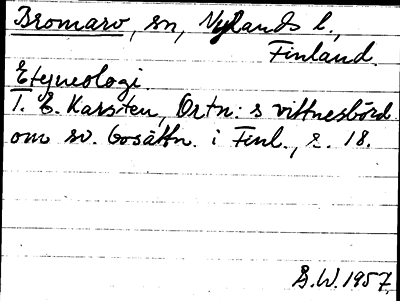 Bromarv, sn, Nylands l.,
Finland.
Etymologi.
T. E. Karsten, Ortn:s vittnesbörd
om sv. bosättn. i Finl., s. 18.
Å.W. 1957.